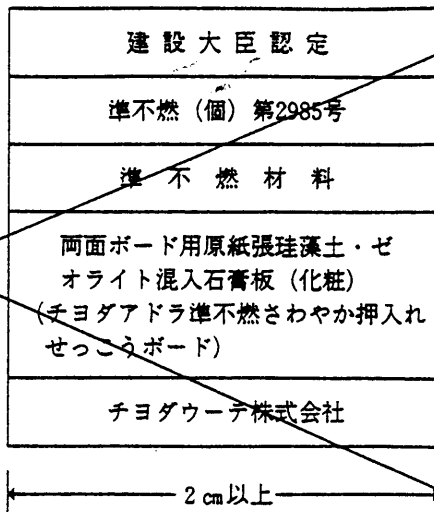 建設大臣認定
準不燃（個）第2985号
準不燃材料
両面ボード用原紙張珪藻土・ゼ
オライト混入石膏板（化粧）
(チヨダアドラ準不燃さわやか押入れ
せっこうボード）
チヨダウーテ株式会社
2cm以上